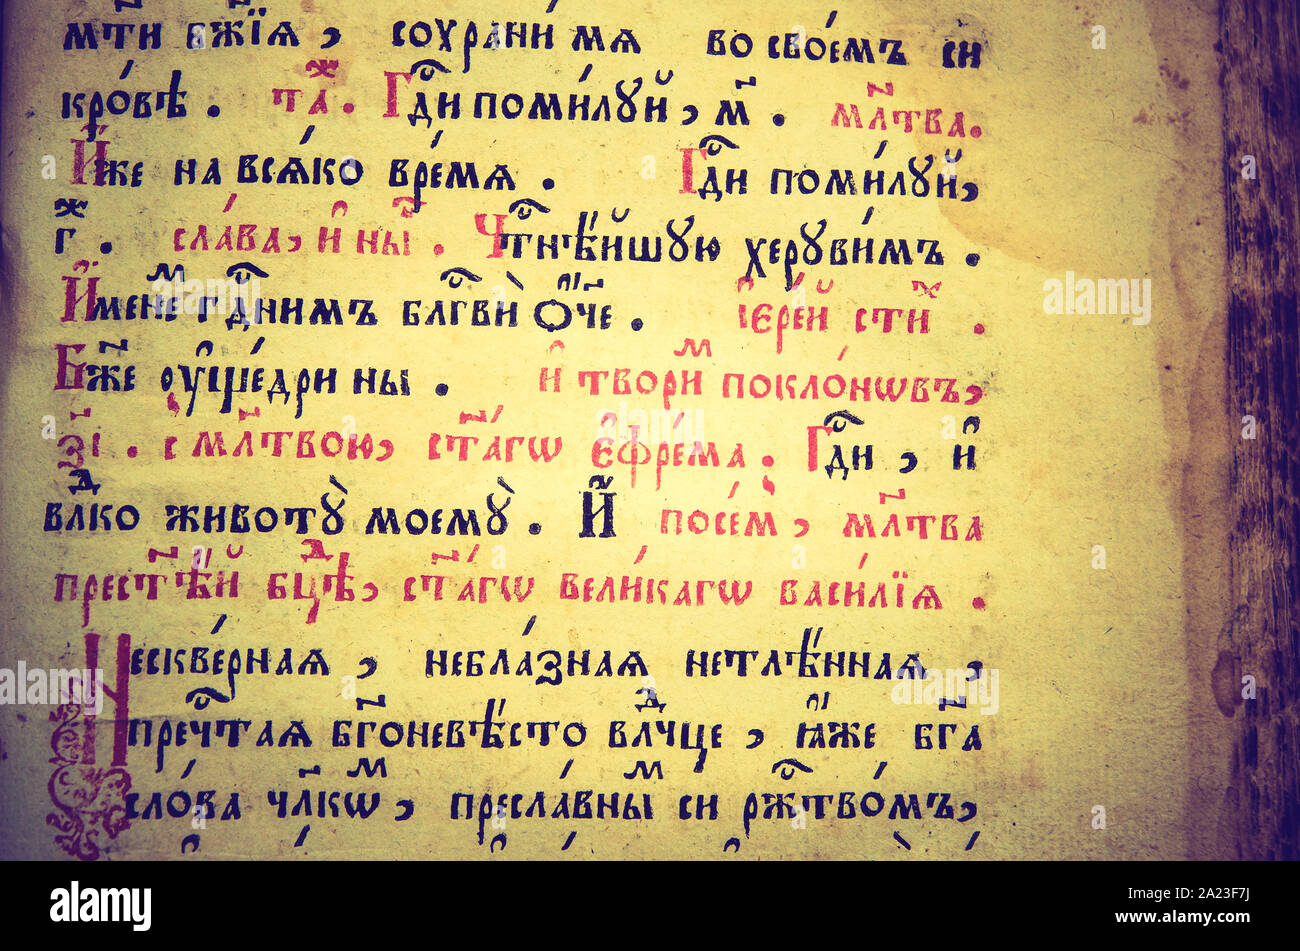 мт҃и бж҃їѧ, сохрани́ мѧ во свое́мъ си
кро́вѣ. таⷤ. Гдⷭ҇и поми́лꙋй, м҃. мл҃тва.
И҆́же на всѧ́ко вре́мѧ. Гдⷭ҇и поми́лꙋй,
гⷤ. сла́ва, и҆ ны҃. Чтⷭ҇нѣ́йшꙋю херꙋви́мъ.
И҆́менеⷨ гдⷭ҇нимъ блгⷭ҇вѝ ѻ҆́ч҃е. і҆ере́й стиⷯ.
Бж҃е ᲂу҆ще́дри ны. и҆ твори́ⷨ покло́нѡвъ,
з҃і. с мл҃твою, ст҃а́гѡ є҆фре́ма. Гдⷭ҇и, и҆
влⷣко животꙋ̀ моемꙋ̀. И҆ посе́м, мл҃тва
прест҃ѣ́й бцⷣѣ, ст҃а́гѡ вели́кагѡ васи́лїѧ.
Нескве́рнаѧ, небла́знаѧ нетлѣ́ннаѧ,
пречтⷭ҇аѧ бг҃оневѣ́сто влⷣчце, ꙗ҆́же бг҃а
сло́ва чл҃кѡⷨ, пресла́вныⷨ си ржⷭ҇тво́мъ,
alamy
Image ID: A23F7J
www.alamy.com